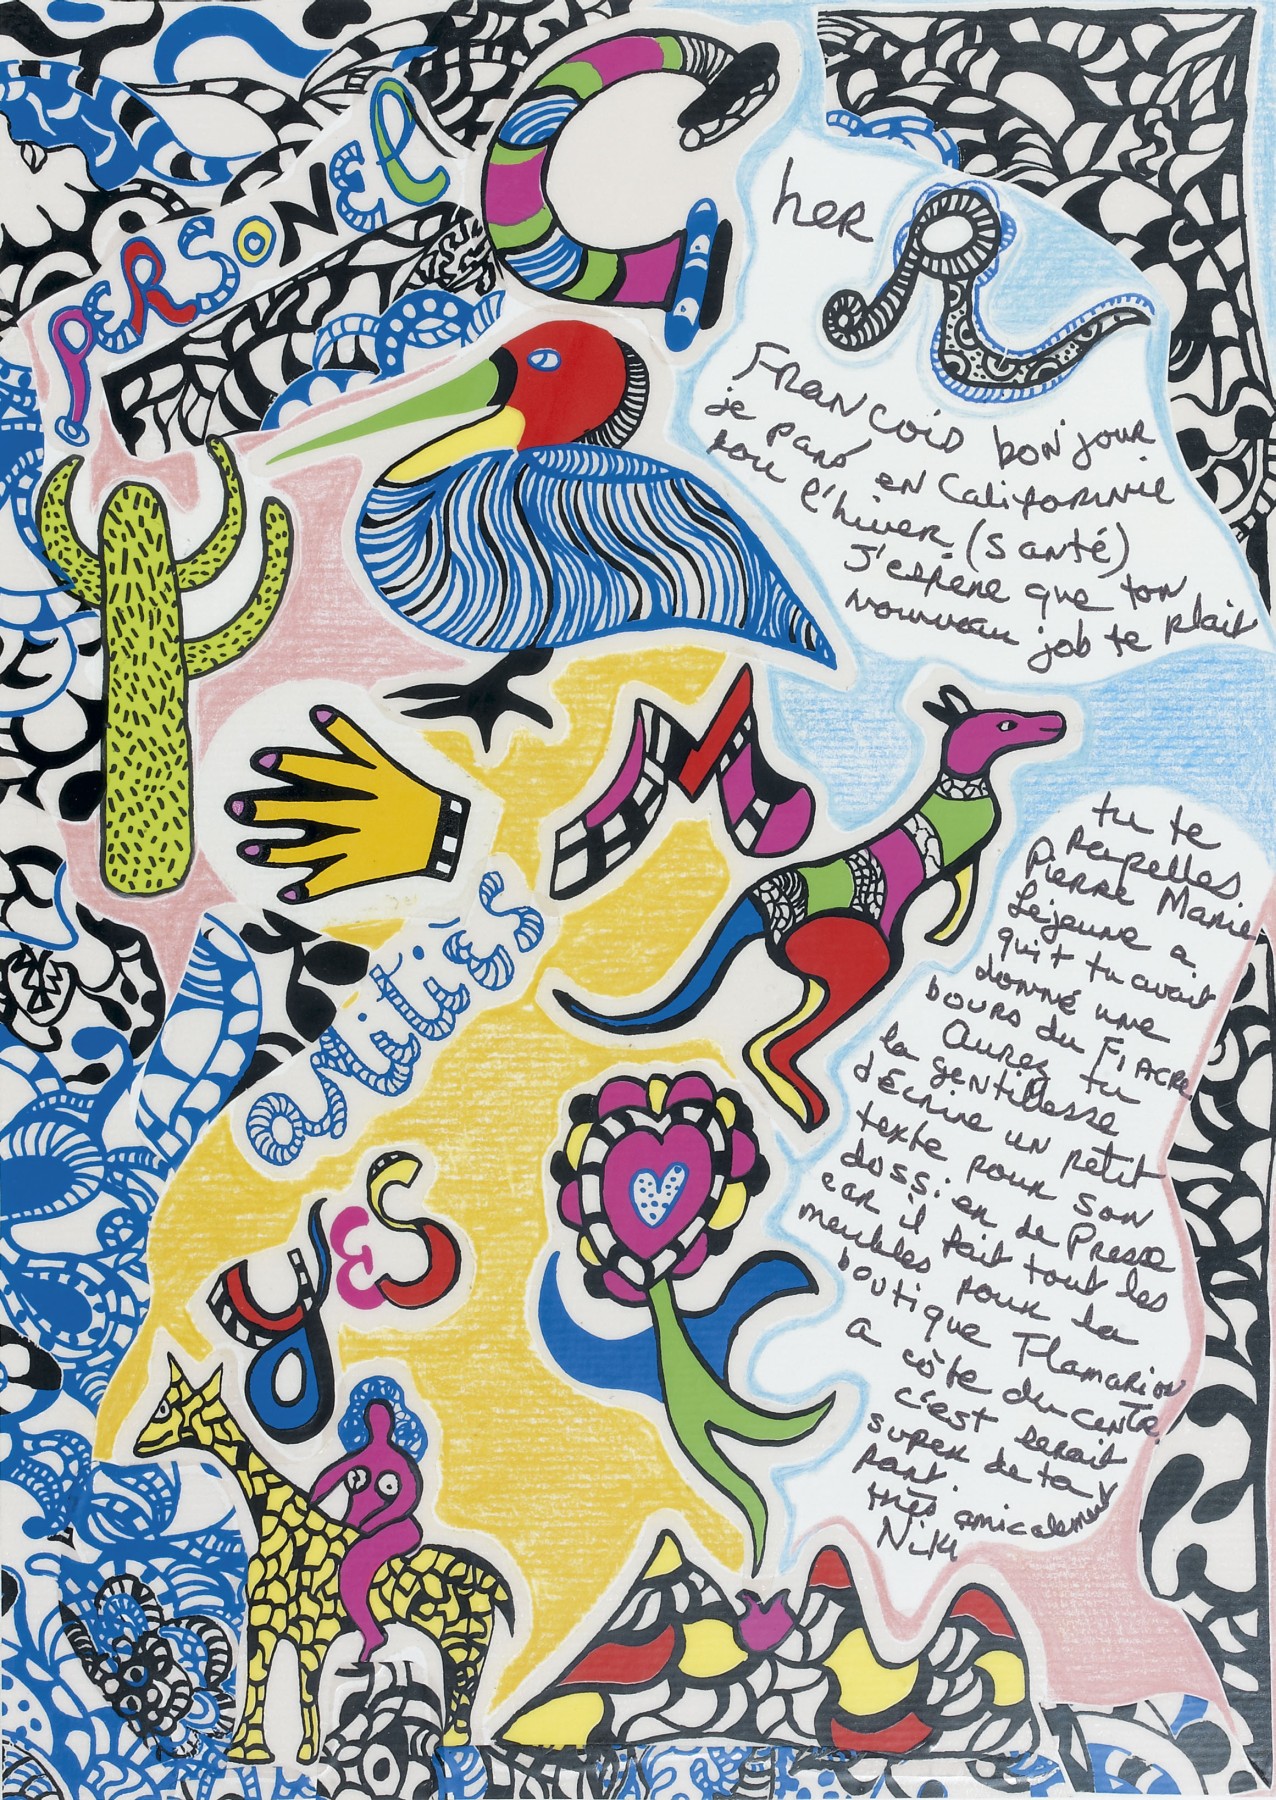 PERSONEL
C
her R
FRANCOIS bonjour
je pars en Californie
pour l'hiver (santé)
J'espère que ton
nouveau job te plait
tu te
rapelles
Pierre Marie
Lejeune a
quit tu avait
donné une
bours du FIACRE
Aurez tu
la gentillesse
d'Ecrire un petit
texte pour son
dossier de Presse
car il fait tout les
meubles pour la
boutique Flamarion
a côte du centre
c'est serait
super de ta
part.
très amicalement
Niki